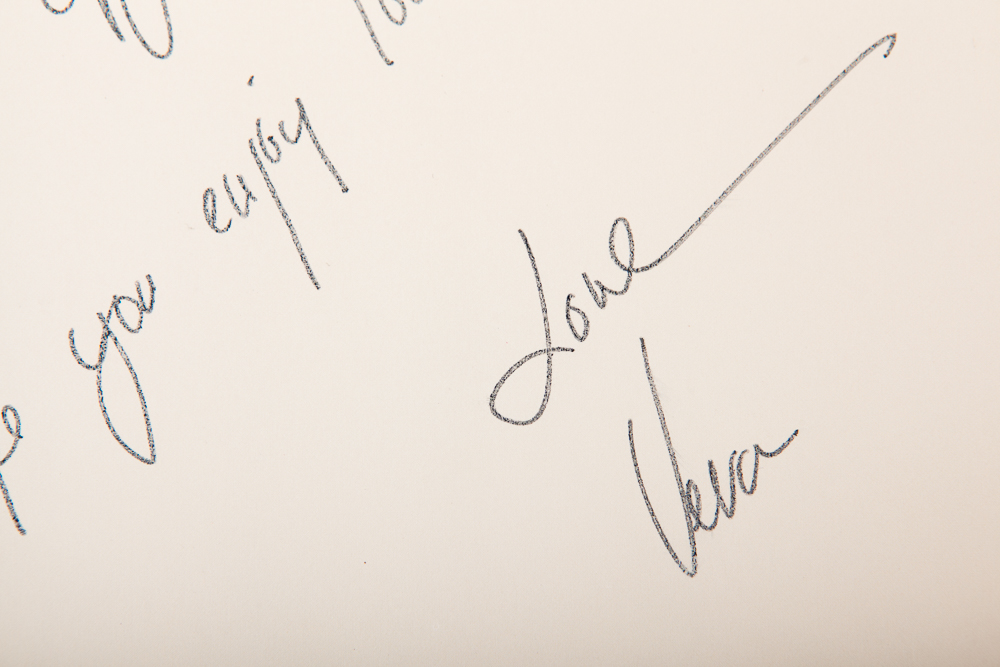 you enjoy
Love
Vera